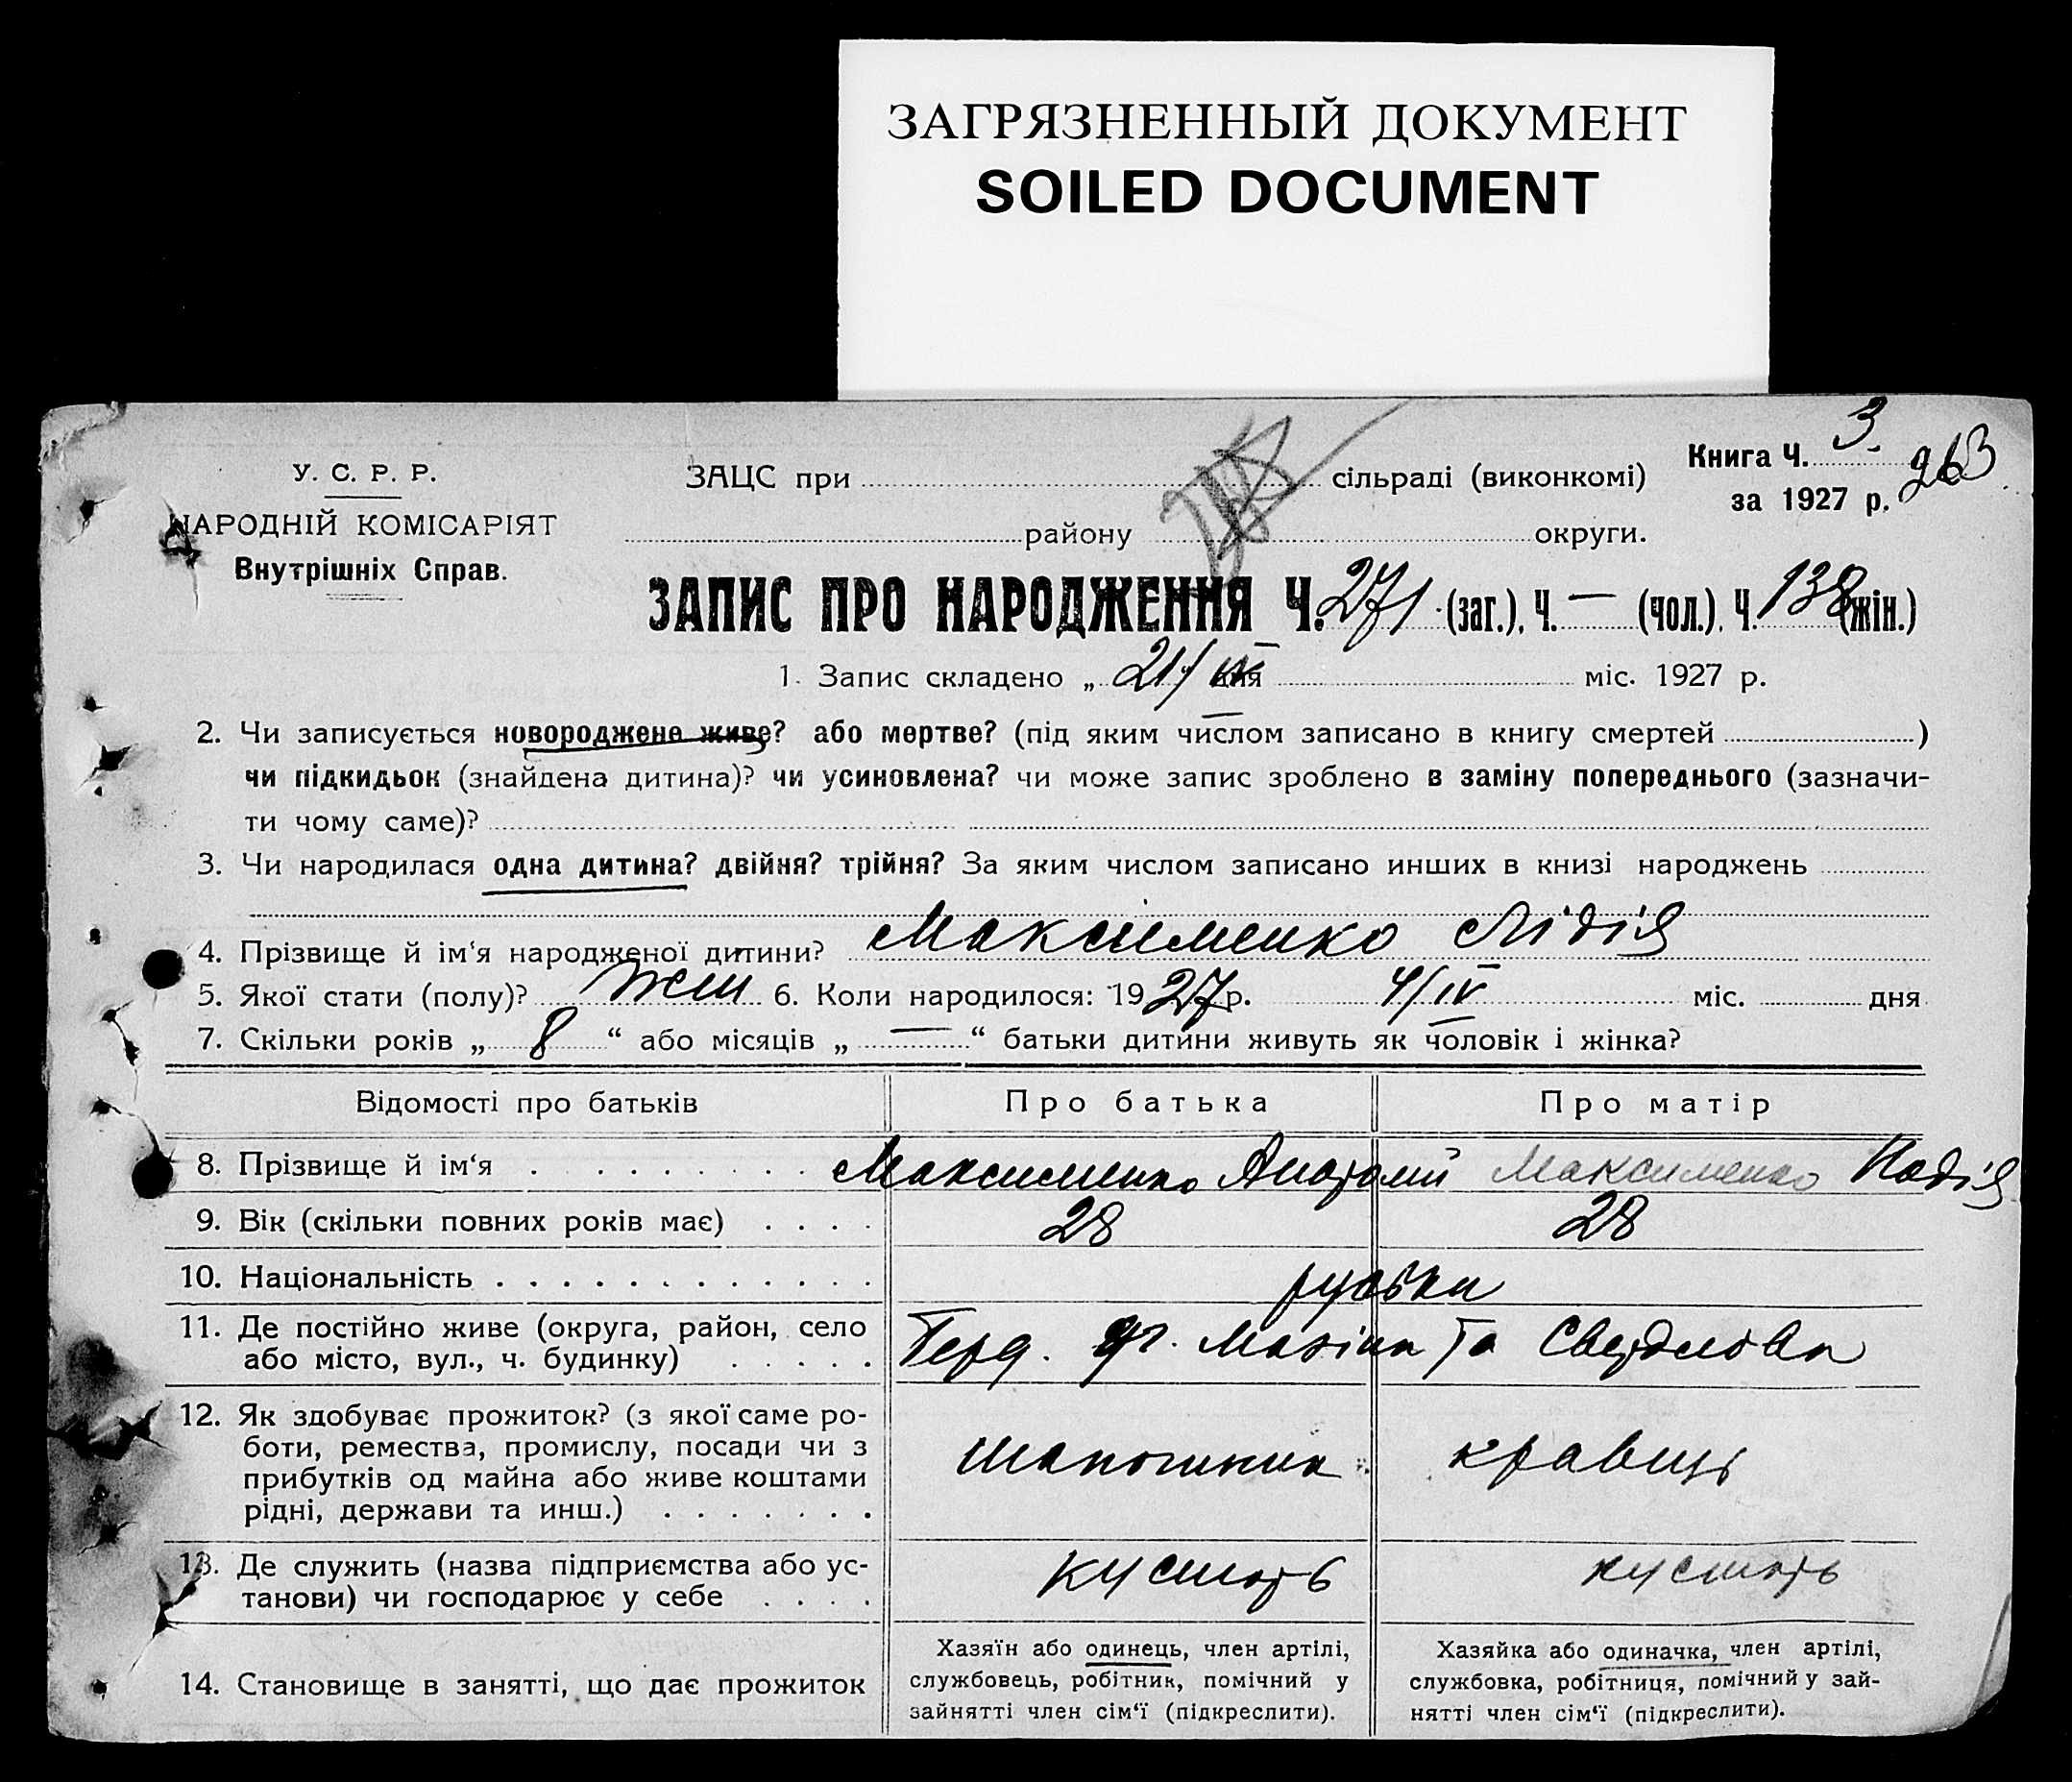 ЗАГРЯЗНЕННЫЙ ДОКУМЕНТ
SOILED DOCUMENT
Книга Ч. 3.
263
за 1927 р.
У. С. Р. Р.
НАРОДНІЙ КОМІСАРІЯТ
Внутрішніх Справ.
ЗАЦС при сільраді (виконкомі)
району округи.
ЗАПИС ПРО НАРОДЖЕННЯ Ч. 271 (заг.), Ч. — (чол.), Ч. 138 (жін.)
1. Запис складено „ 21/IV дня міс. 1927 р.
2. Чи записується новороджене живе? або мертве? (під яким числом записано в книгу смертей )
чи підкидьок (знайдена дитина)? чи усиновлена? чи може запис зроблено в заміну попереднього (зазначи-
ти чому саме)?
3. Чи народилася одна дитина? двійня? трійня? За яким числом записано инших в книзі народжень
4. Прізвище й ім‘я народженої дитини? Максименко Лідія
5. Якої стати (полу)? жін 6. Коли народилося: 1927 р. 4/IV міс. дня
7. Скільки років „ 8 “ або місяців „ — “ батьки дитини живуть як чоловік і жінка?
Відомості про батьків Про батька Про матір
8. Прізвище й ім‘я Максименко Анатолій Максименко Надія
9. Вік (скільки повних років має) 28 28
10. Національність руська
11. Де постійно живе (округа, район, село
або місто, вул., ч. будинку) та Свердлова
12. Як здобуває прожиток? (з якої саме ро-
боти, ремества, промислу, посади чи з
прибутків од майна або живе коштами
рідні, держави та инш.)
шапошник кравець
13. Де служить (назва підприємства або ус-
танови) чи господарює у себе
кустарь кустарь
14. Становище в занятті, що дає прожиток
Хазяїн або одинець, член артілі,
службовець, робітник, помічний у
зайнятті член сім‘ї (підкреслити).
Хазяйка або одиначка, член артілі,
службовка, робітниця, помічний у зай-
нятті член сім‘ї (підкреслити).